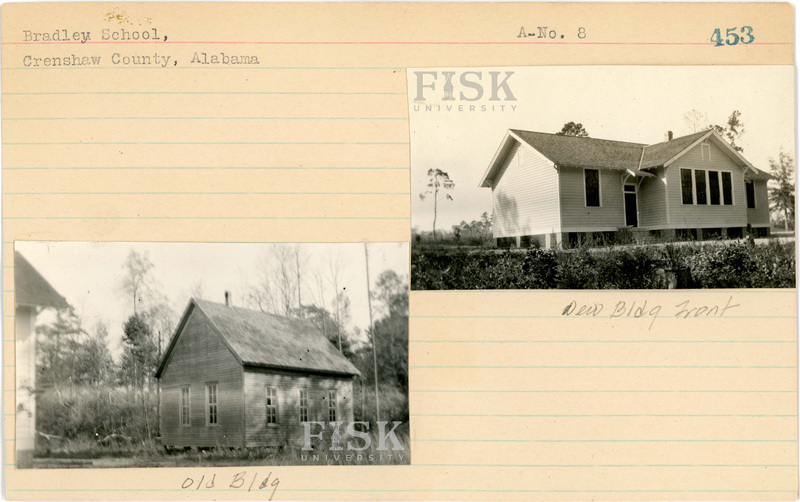 Bradley School,
A-No. 8
453
Crenshaw County, Alabama
FISK
UNIVERSITY
New Bldg Front
FISK
UNIVERSITY
Old Bldg